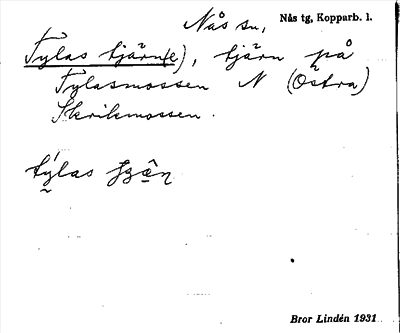 Nås sn, Nås tg, Kopparb. l.
Tylas tjärn(e), tjärn på
Tylasmossen N (Östra)
Skrikmossen.
Bror Lindén 1931